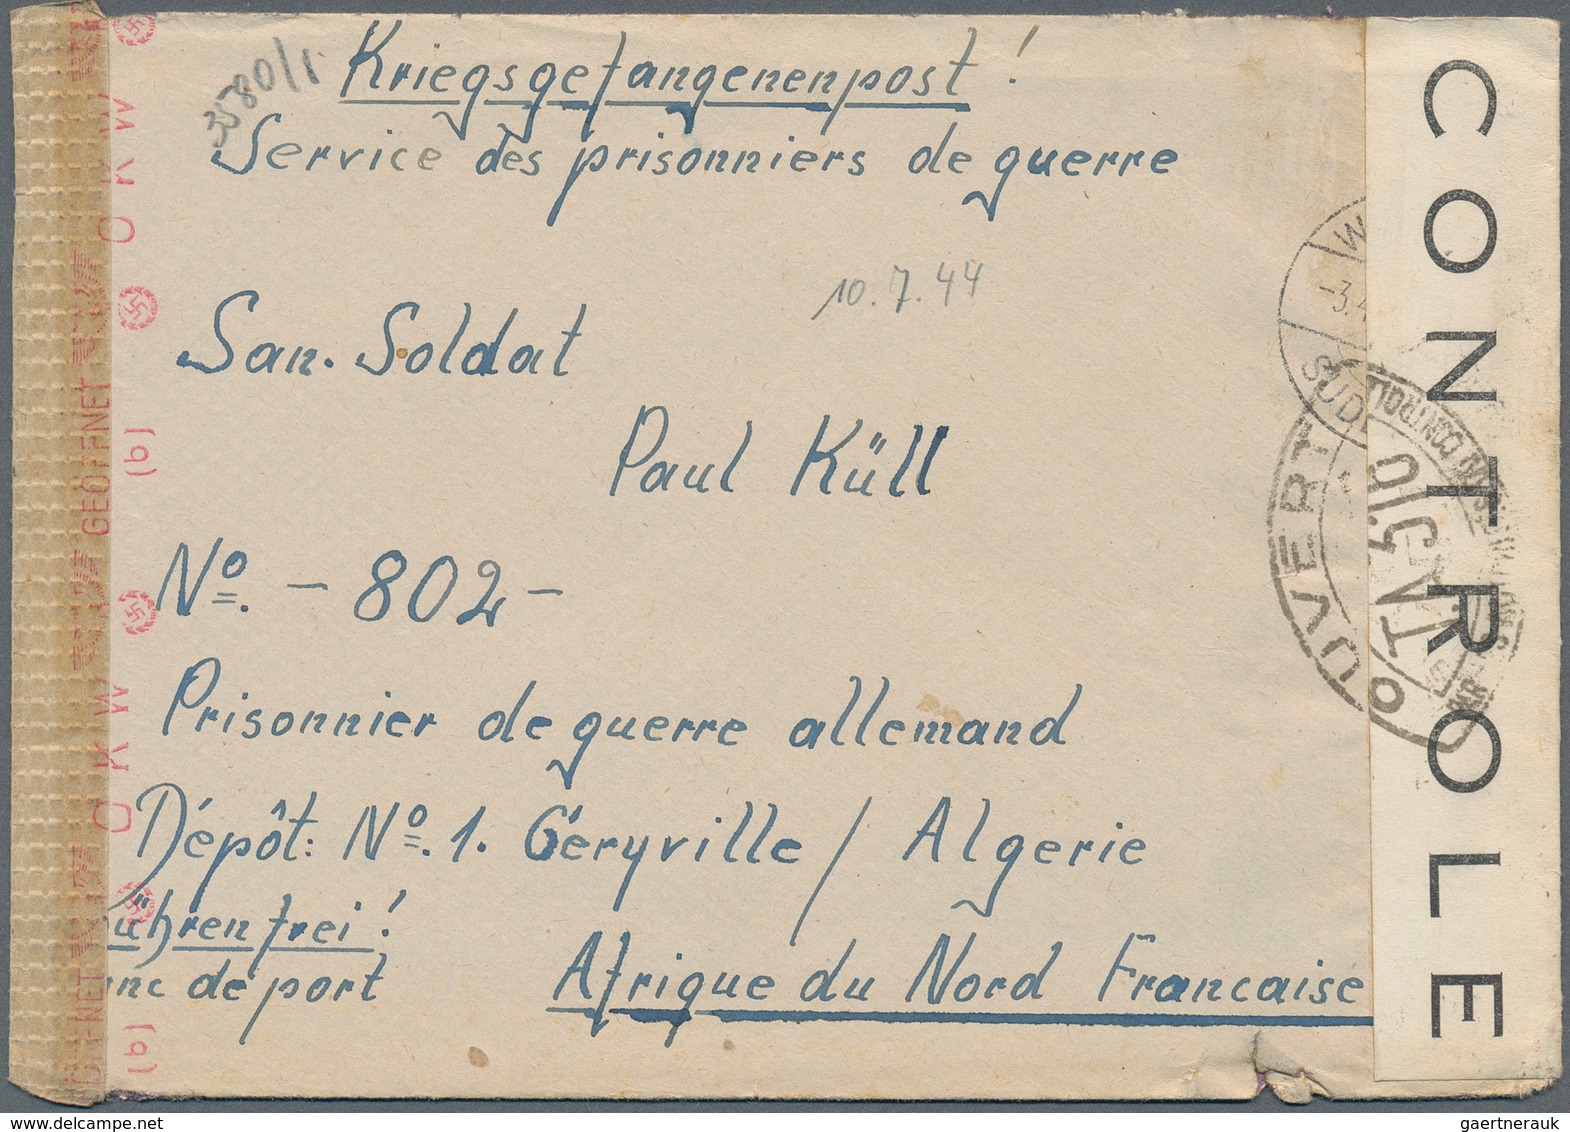 3580/1
Kriegsgefangenenpost!
Service des prisonniers de guerre
10.7.44
San. Soldat
Paul Küll
Nº. - 802 -
Prisonnier de guerre allemand
Dépôt: Nº. 1. Géryville / Algerie
ührenfrei!
nc de port
Afrique du Nord Francaise
CONTROLE
OKW
GEÖFFNET
(b)
OKW
(b)
OUVERT
-3.4
SUDE